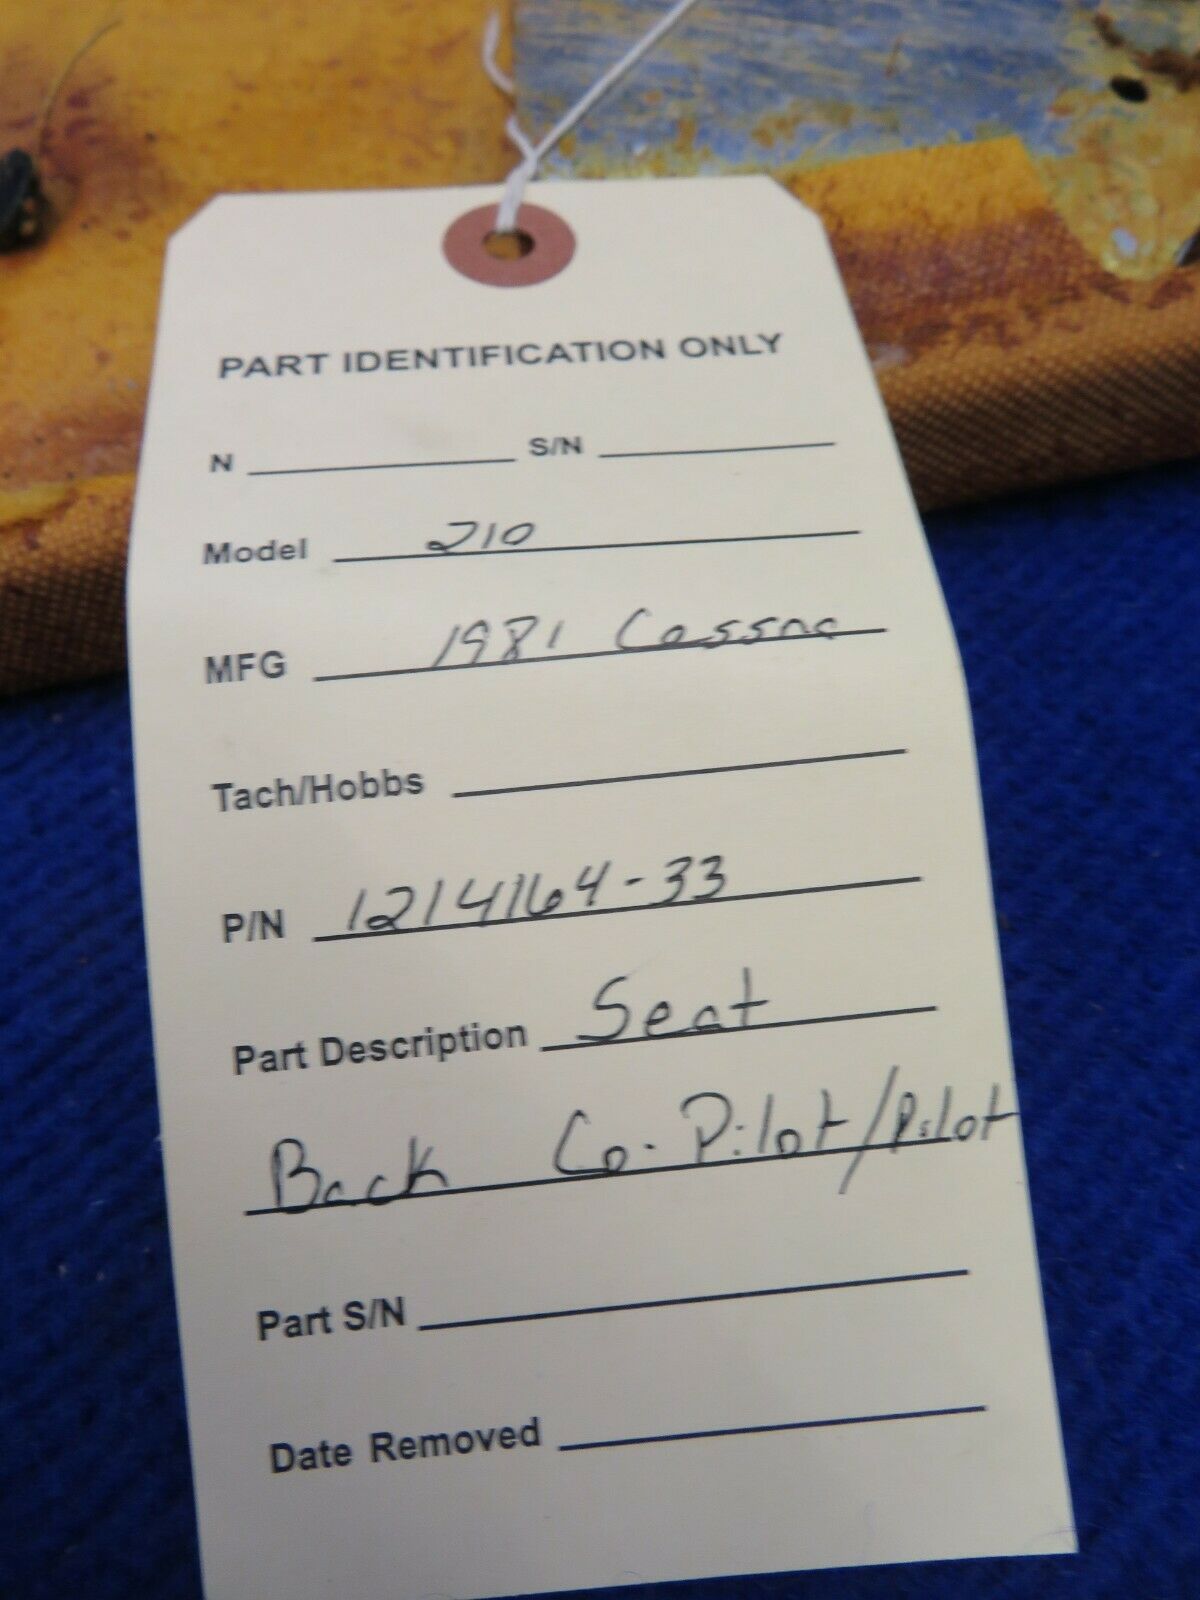 PART IDENTIFICATION ONLY
N S/N
Model 210
MFG 1981 Cessna
Tach/Hobbs
P/N 1214164-33
Part Description Seat
Back Co-Pilot/Pilot
Part S/N
Date Removed